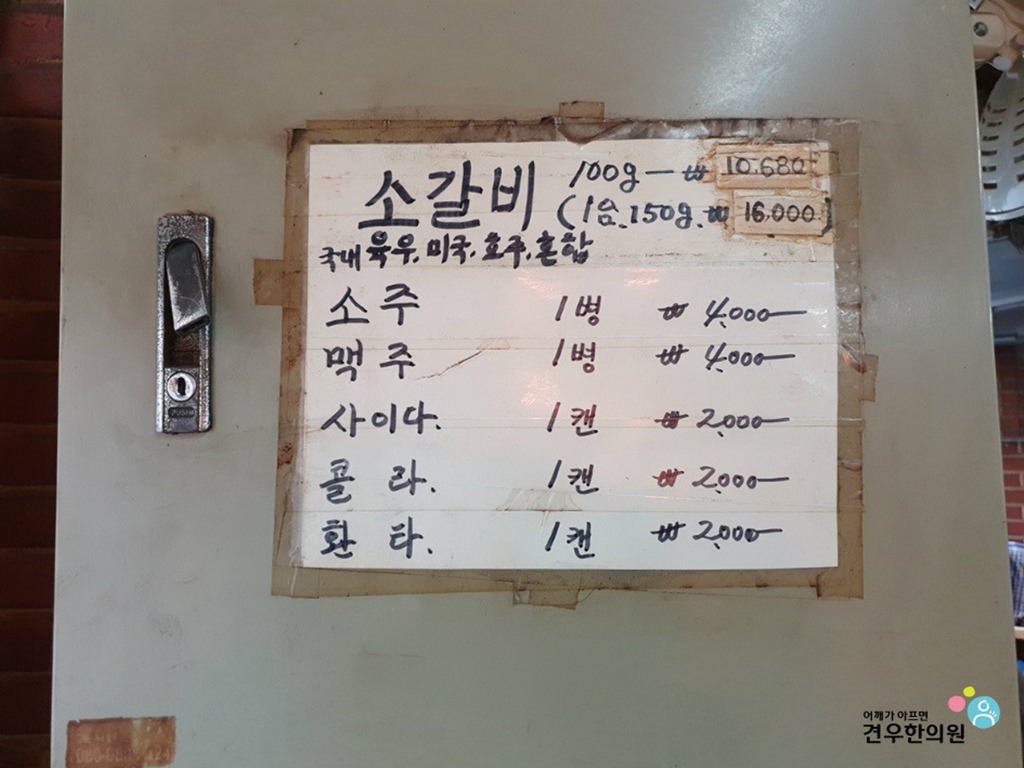 소갈비 100g - ₩ 10.680
(1인. 150g. ₩ 16.000)
국내 육우. 미국. 호주. 혼합
소주 1병 ₩ 4.000-
맥주 1병 ₩ 4.000-
사이다. 1캔 ₩ 2.000-
콜라. 1캔 ₩ 2.000-
환타. 1캔 ₩ 2.000-
PUSH
어깨가 아프면
견우한의원